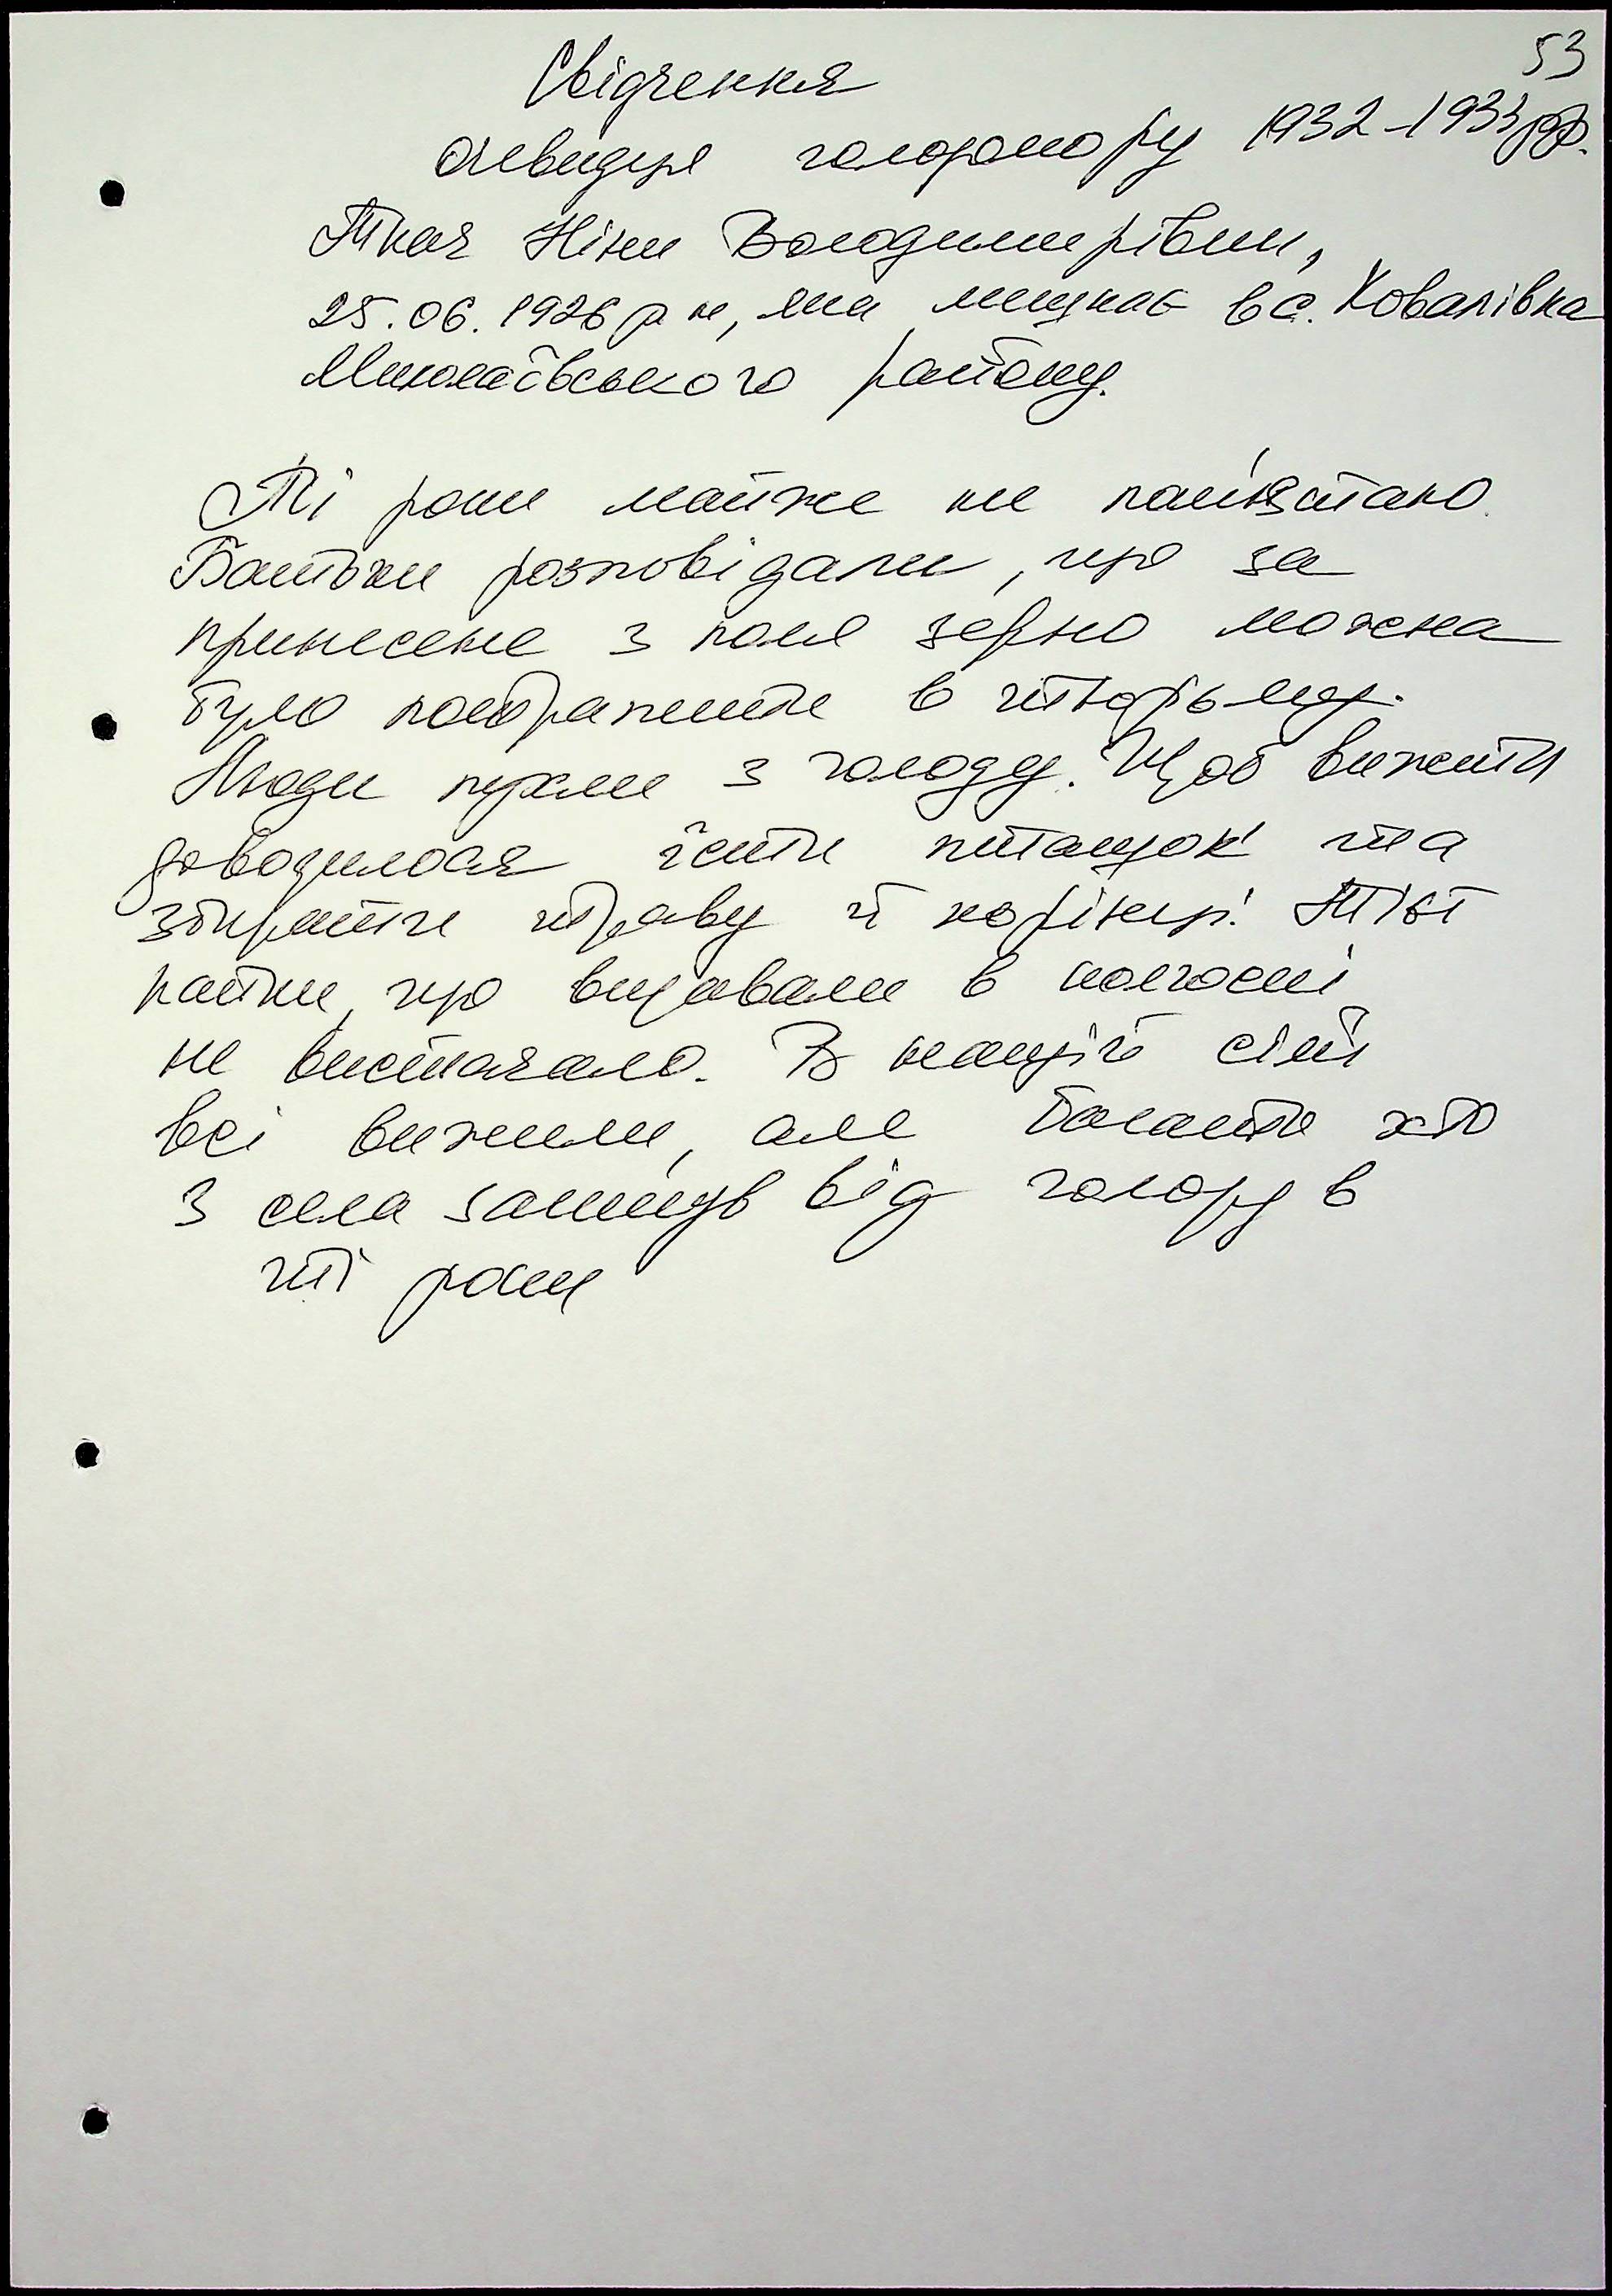 53
Свідчення
очевидця голодомору 1932-1933рр.
Ткач Ніни Володимирівни,
25.06.1926 р н, яка мешкає в с. Ковалівка
Миколаївського району.
Ті роки майже не пам'ятаю.
Батьки розповідали, що за
принесене з поля зерно можна
було потрапити в тюрьму.
Люди пухли з голоду. Щоб вижити
доводилося їсти пташок та
збирати траву й корінці. Тієї
пайки, що видавали в колгоспі
не вистачало. В нашій сім'ї
всі вижили, але багато хто
з села загинув від голоду в
ті роки